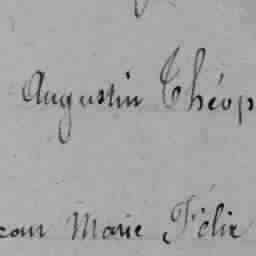 Augustin Théop
Marie Félix